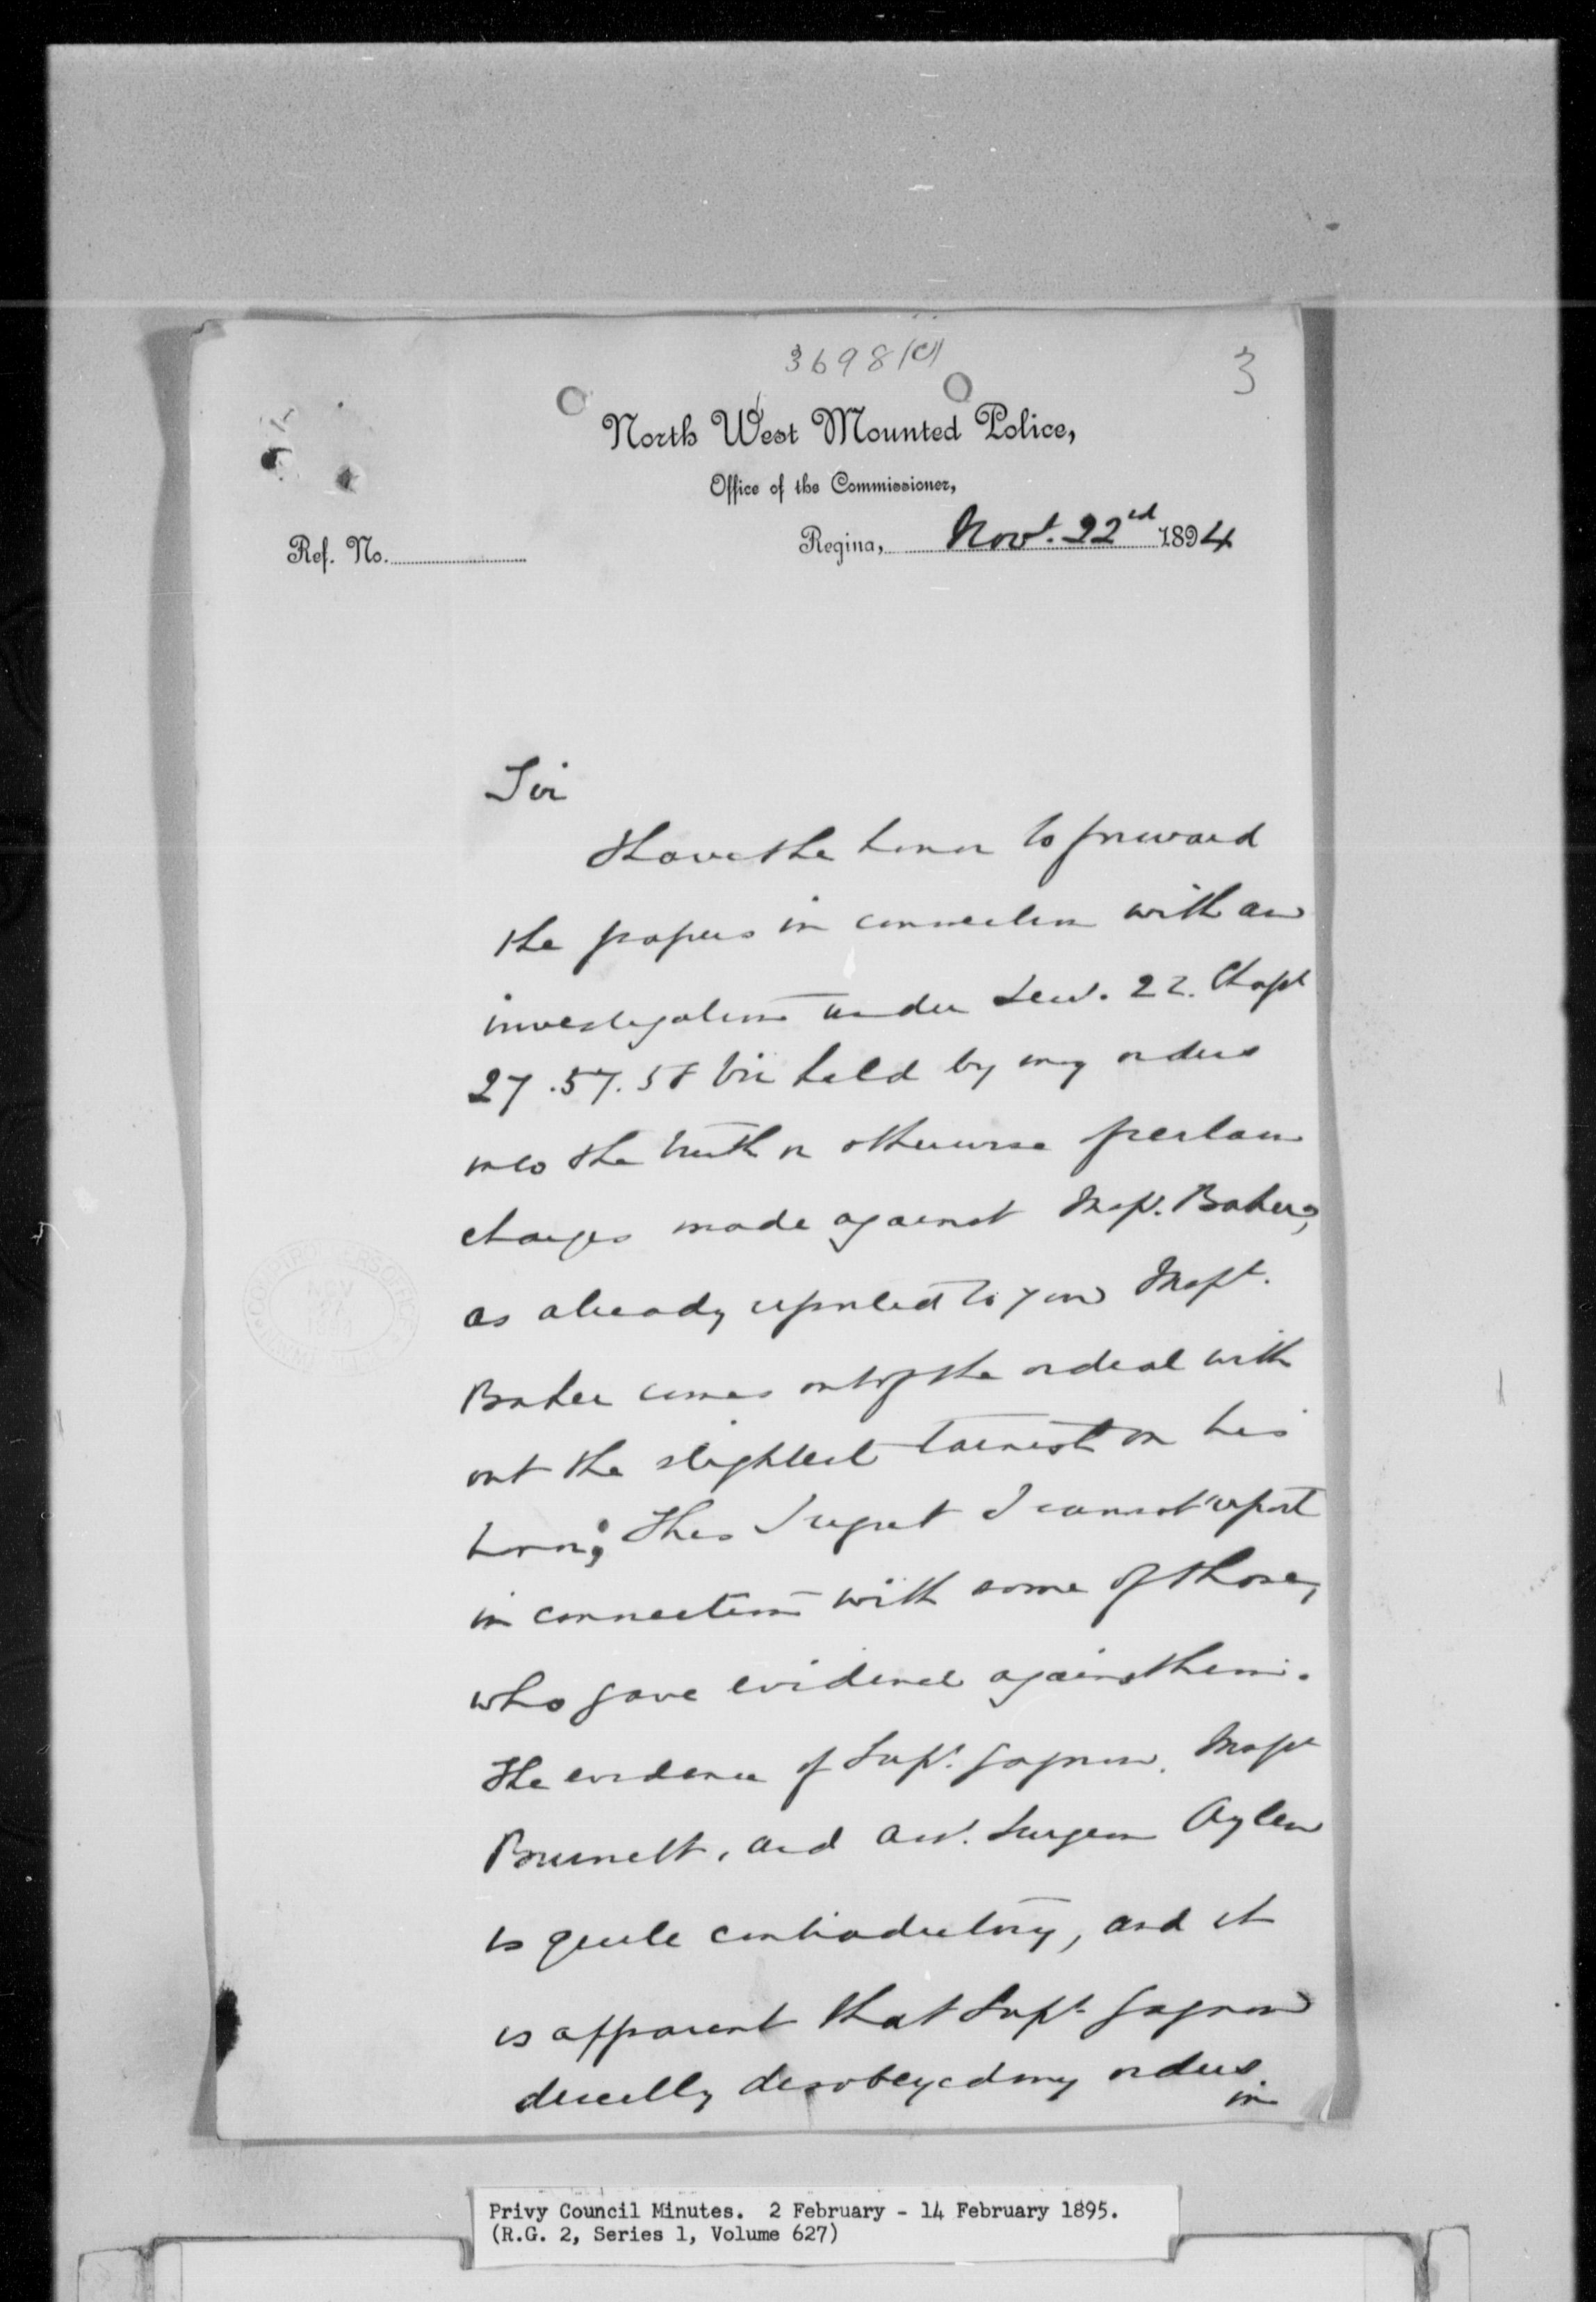 3698(C)
3
North West Mounted Police,
Office of the Commissioner,
Ref. No.
Regina, Novr. 22nd 1894
Sir
I have the honor to forward
the papers in connection with an
investigation under Sec. 22. Chapt
27. 57. 58 Vic held by my orders
into the truth or otherwise certain
charges made against Inspr. Baker,
as already reported to you Inspt.
Baker comes out of the ordeal with
out the slightest tarnish on his
honor; this I regret I cannot report
in connection with some of those,
who gave evidence against him.
The evidence of Supt. Gagnon, Inspt
Brunelt, and Asst. Surgeon Aylen
is quite contradictory, and it
is apparent that Supt. Gagnon
directly disobeyed my orders.
in
Privy Council Minutes. 2 February - 14 February 1895.
(R.G. 2, Series 1, Volume 627)